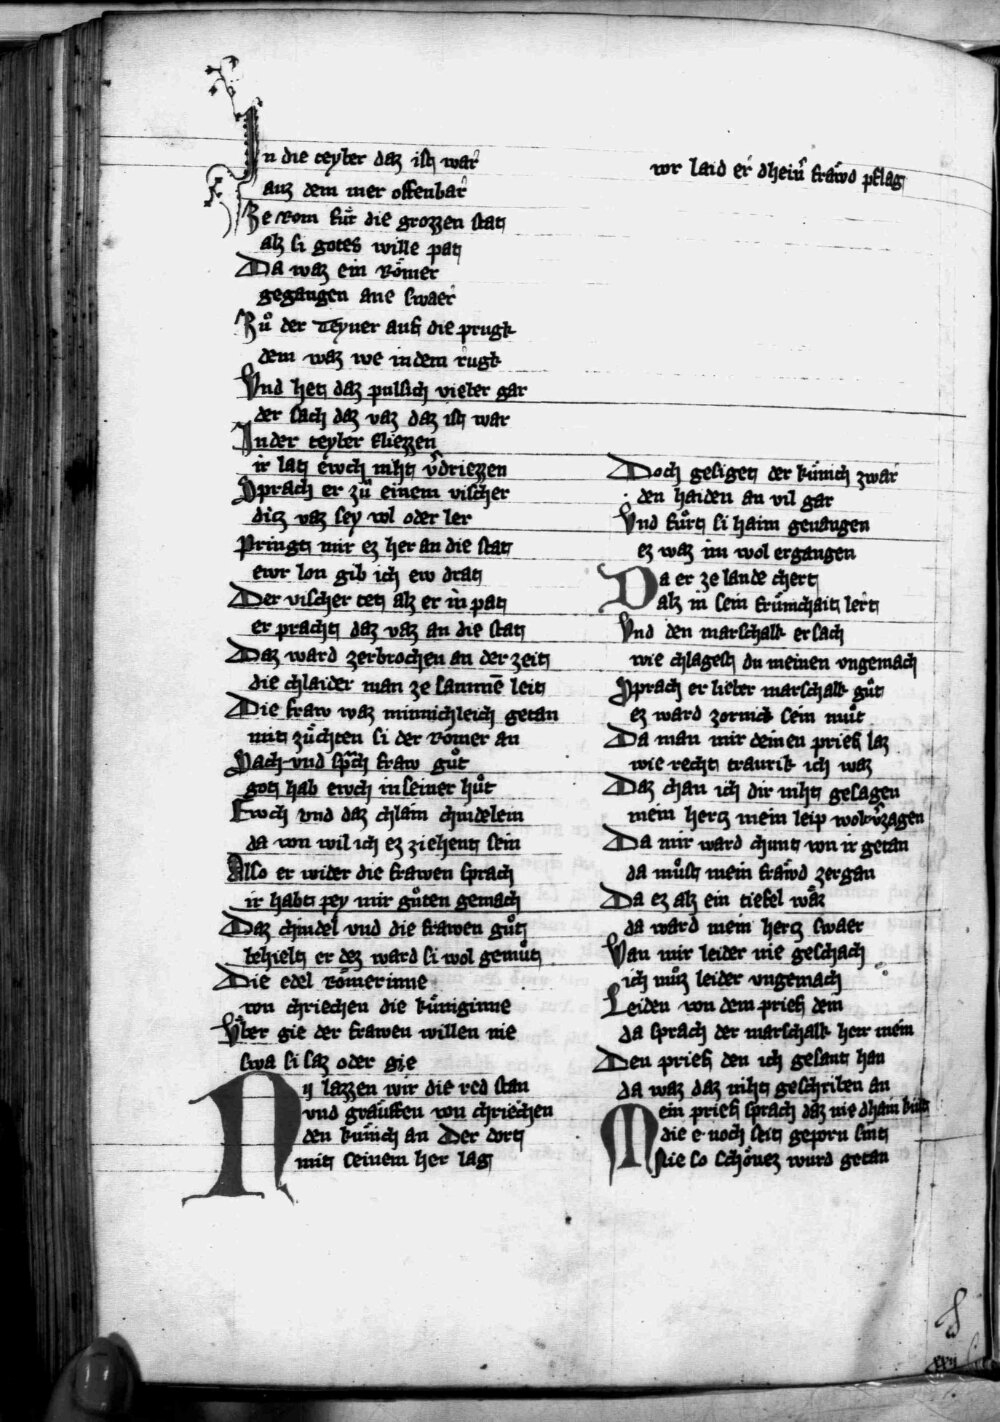 In die teyber daz ist war
auz dem mer offenbar
Ze Rom fuͤr die grozzen stat
alz si gotes wille pat
Da waz ein Roͤmer
gegangen ane swaer
Zuͦ der Teyuer auf die prugk
dem waz we in dem rugk
Vnd het daz pulsich vieber gar
der sach daz vaz daz ist war
In der teyber fliezzen
ir lat ewch niht v̓driezzen
Sprach er zuͦ einem vischer
ditz vaz sey vol oder ler
Pringt mir ez her an die stat
ewr lon gib ich ew drat
Der vischer tet alz er in pat
er pracht daz vaz an die stat
Daz ward zerbrochen an der zeit
die chlaider man ze samme leit
Die fraw waz minnichleich getan
mit zuͤchten si der Romer an
Sach vnd sp̃ch fraw guͦt
got hab ewch in seiner huͦt
Ewch vnd daz chlain chindelein
da von wil ich ez ziehent sein
Also er wider die frawen sprach
ir habt pey mir guͦten gemach
Daz chindel vnd die frawen guͦt
behielt er dez ward si wol gemuͦt
Die edel Roͤmerinne
von chriechen die kuͤniginne
V̓ber gie der frawen willen nie
swa si saz oder gie
Ny lazzen wir die red stan
vnd graiffen von chriechen
den kuͤnich an Der dort
mit seinem her lag
wr laid er dhein̄ fraͤwd pflag
Doch gesiget der kuͤnich zwar
den haiden an vil gar
Vnd fuͦrt si haim geuangen
ez waz im wol ergangen
Da er ze lande chert
alz in sein fruͤmchait lert
Vnd den marschalk ersach
wie chlagest du meinen vngemach
Sprach er lieber marschalk guͦt
ez ward zornick sein muͦt
Da man mir deinen prief laz
wie recht traurik ich waz
Daz chan ich dir niht gesagen
mein hertz mein leip wolt v̓zagen
Da mir ward chunt von ir getan
da muͦst mein fraͤwd zergan
Da ez alz ein tiefel waͤr
da ward mein hertz swaer
Wan mir leider nie geschach
ich muͦz leider vngemach
Leiden von dem prief dem
da sprach der marschalk herr mein
Den prief den ich gesant han
da waz daz niht geschriben an
Mein prief sprach daz nie dhain kint
die e noch seit geporn sint
Nie so schoͤnez wurd getan